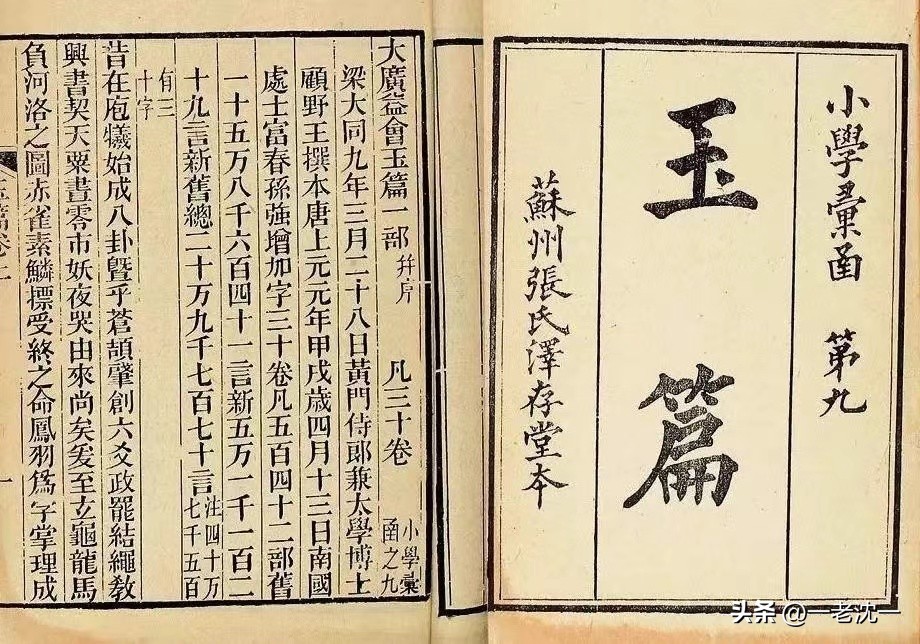 小學彙函　第九
玉篇
蘇州張氏澤存堂本
大廣益會玉篇一部　并序　凡三十卷　小學彙函之九
梁大同九年三月二十八日黃門侍郎兼太學博士
顧野王撰本唐上元元年甲戌歲四月十三日南國
處士富春孫強增加字三十卷凡五百四十二部舊
一十五万八千六百四十一言新五万一千一百二
十九言新舊總二十万九千七百七十言　注四十万七千五百
有三十字
昔在庖犧始成八卦暨乎蒼頡肇創六爻政罷結繩教
興書契天粟晝零市妖夜哭由來尚矣爰至玄龜龍馬
負河洛之圖赤雀素鱗標受終之命鳳羽爲字掌理成
玉篇卷上
一
头条 @一老沈一